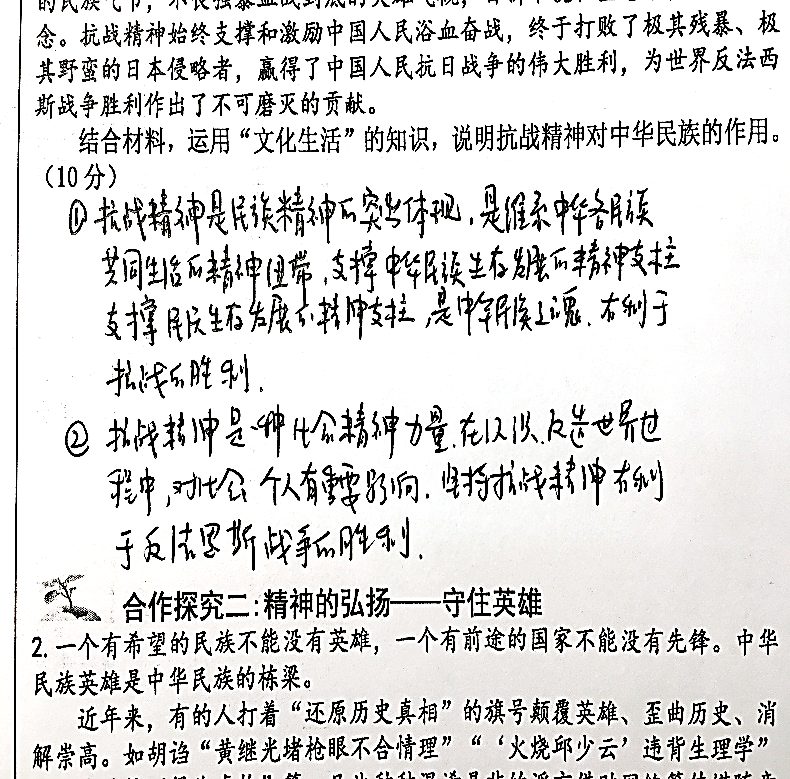 的民族气节，不畏强暴血战到底的英雄气概，
念。抗战精神始终支撑和激励中国人民浴血奋战，终于打败了极其残暴、极
其野蛮的日本侵略者，赢得了中国人民抗日战争的伟大胜利，为世界反法西
斯战争胜利作出了不可磨灭的贡献。
结合材料，运用“文化生活”的知识，说明抗战精神对中华民族的作用。
（10分）
① 抗战精神是民族精神的突出体现，是维系中华各民族
共同生活的精神纽带，支撑中华民族生存发展的精神支柱
支撑民族生存发展的精神支柱，是中华民族之魂．有利于
抗战的胜利．
② 抗战精神是一种社会精神力量．在认识．改造世界过
程中，对社会 个人有重要影响．坚持抗战精神有利
于反法思斯战争的胜利．
合作探究二：精神的弘扬——守住英雄
2. 一个有希望的民族不能没有英雄，一个有前途的国家不能没有先锋。中华
民族英雄是中华民族的栋梁。
近年来，有的人打着“还原历史真相”的旗号颠覆英雄、歪曲历史、消
解崇高。如胡诌“黄继光堵枪眼不合情理”“‘火烧邱少云’违背生理学”